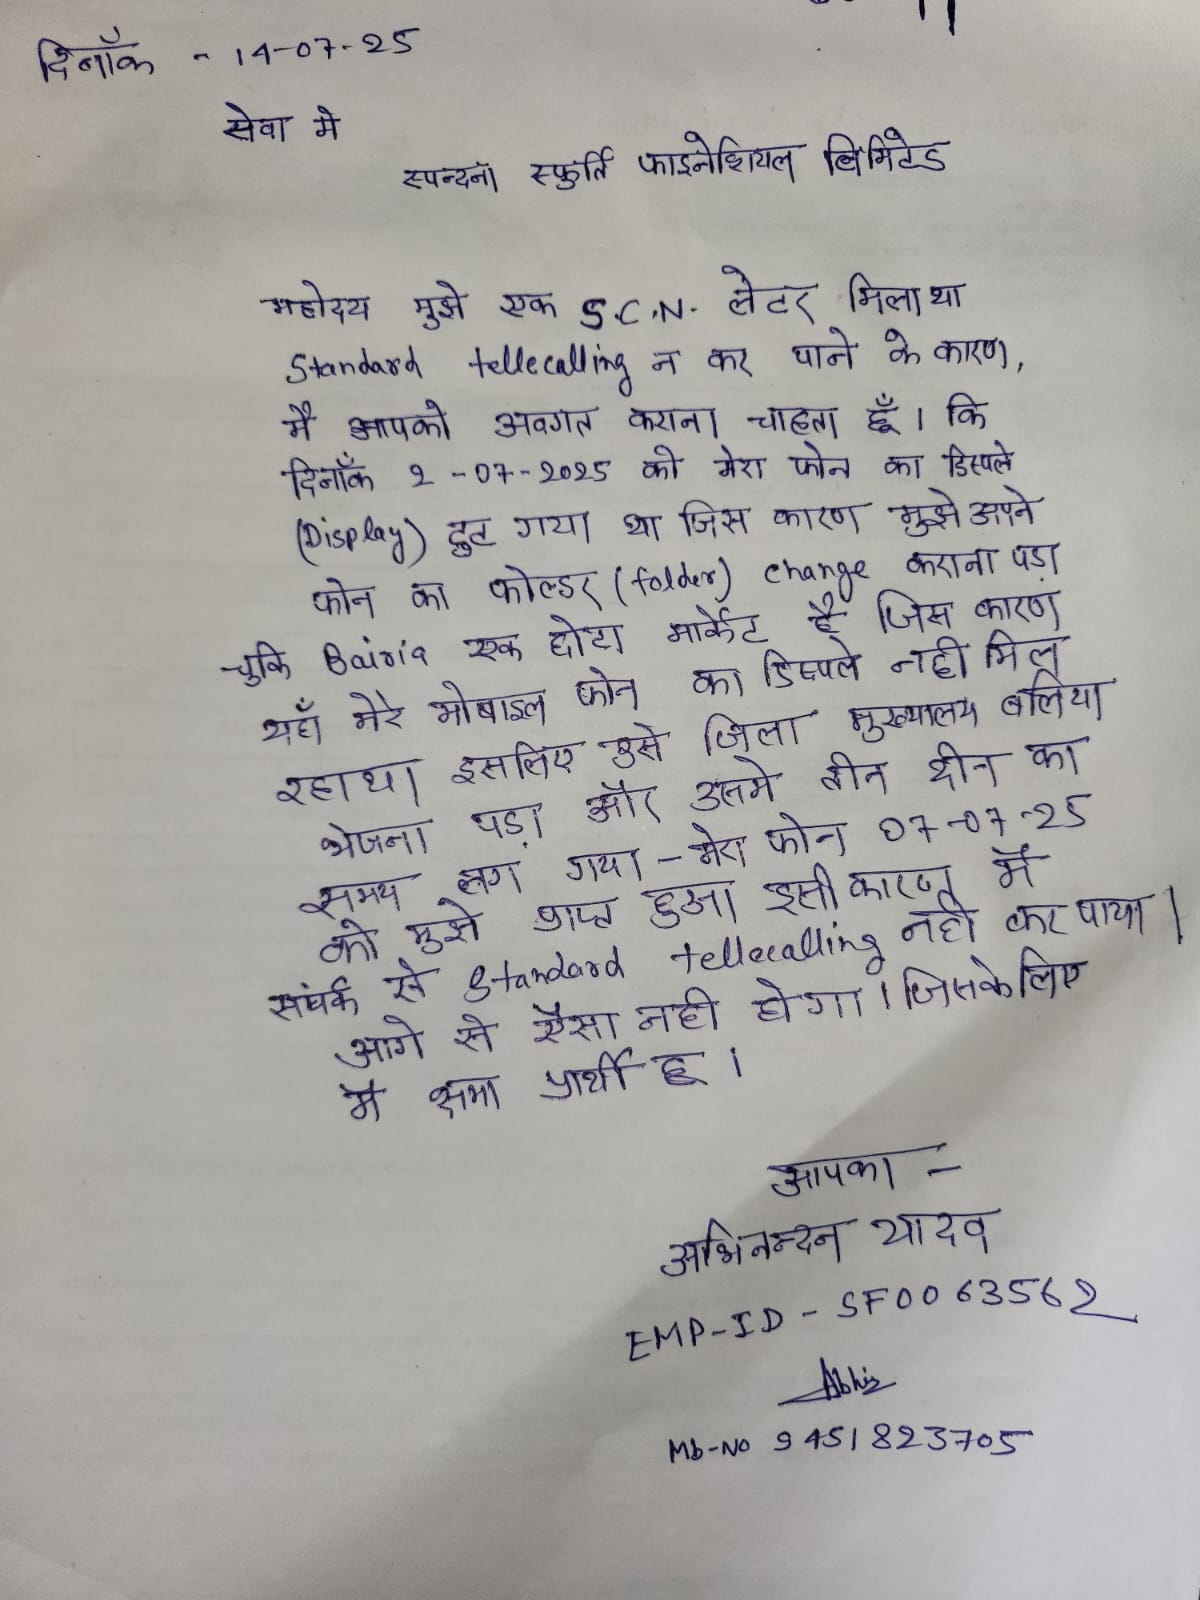 दिनाँक - 14-07-25
सेवा मे
स्पन्दना स्फुर्ति फाइनेशियल लिमिटेड
महोदय मुझे एक S.C.N. लेटर मिला था
Standard tellecalling न कर पाने के कारण,
मै आपको अवगत कराना चाहता हूँ। कि
दिनाँक 2-07-2025 को मेरा फोन का डिस्पले
(Display) टुट गया था जिस कारण मुझे अपने
फोन का फोल्डर (folder) change कराना पड़ा
चुकि Bairia एक छोटा मार्केट है जिस कारण
यहाँ मेरे मोबाइल फोन का डिस्पले नही मिल
रहा था इसलिए उसे जिला मुख्यालय बलिया
भेजना पड़ा और उसमे तीन दीन का
समय लग गया - मेरा फोन 07-07-25
को मुझे प्राप्त हुआ इसी कारण मैं
संपर्क से Standard tellecalling नही कर पाया।
आगे से ऐसा नही होगा। जिसके लिए
मैं क्षमा प्रार्थी हू।
आपका -
अभिनन्दन यादव
EMP-ID - SF0063562
Abhis
Mb-No 9451823705